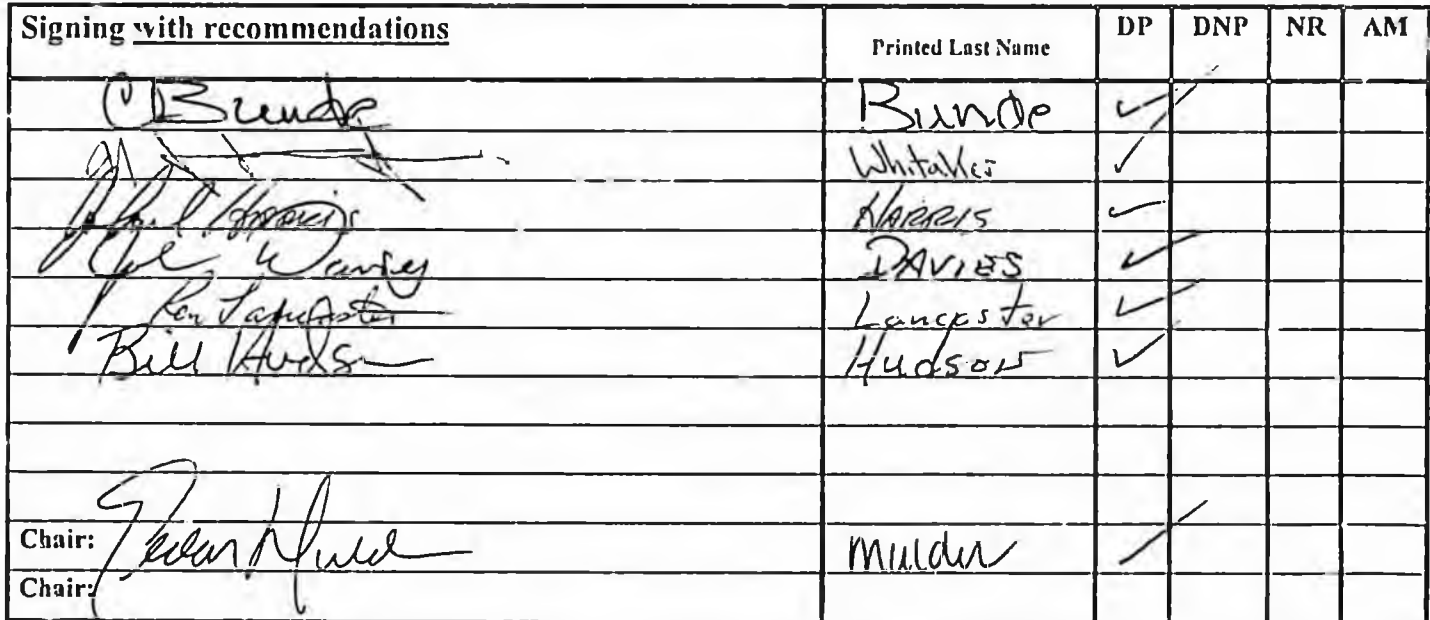 Signing with recommendations Printed Last Name DP DNP NR AM
C Bunde Bunde ✓
Whitaker ✓
Harris HARRIS ✓
DAVIES ✓
Ron Lancaster Lancaster ✓
Bill Hudson Hudson ✓
Chair: Eldon Mulder Mulder ✓
Chair: